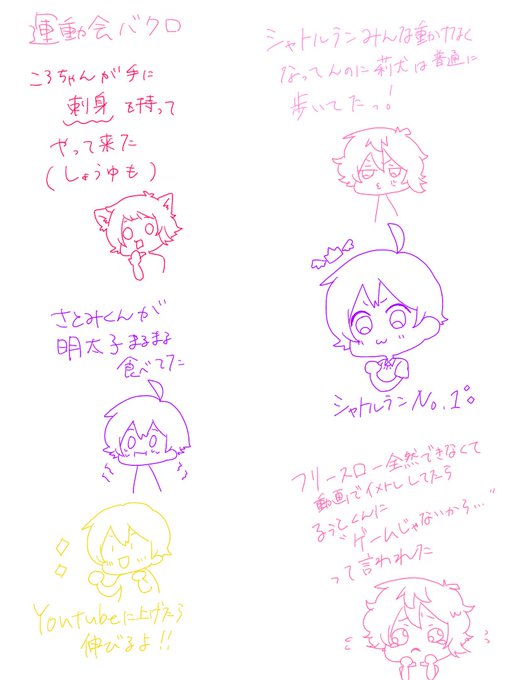 運動会バクロ
ころちゃんが手に
刺身を持って
やって来た
(しょうゆも)
さとみくんが
明太子まるまる
食べてた
Youtubeに上げたら
伸びるよ!!
シャトルランみんな動けなく
なってんのに莉犬は普通に
歩いてたっ!
シャトルランNo.1。
フリースロー全然できなくて
動画でイメトレしてたら
るぅとくんに
"ゲームじゃないから…"
って言われた